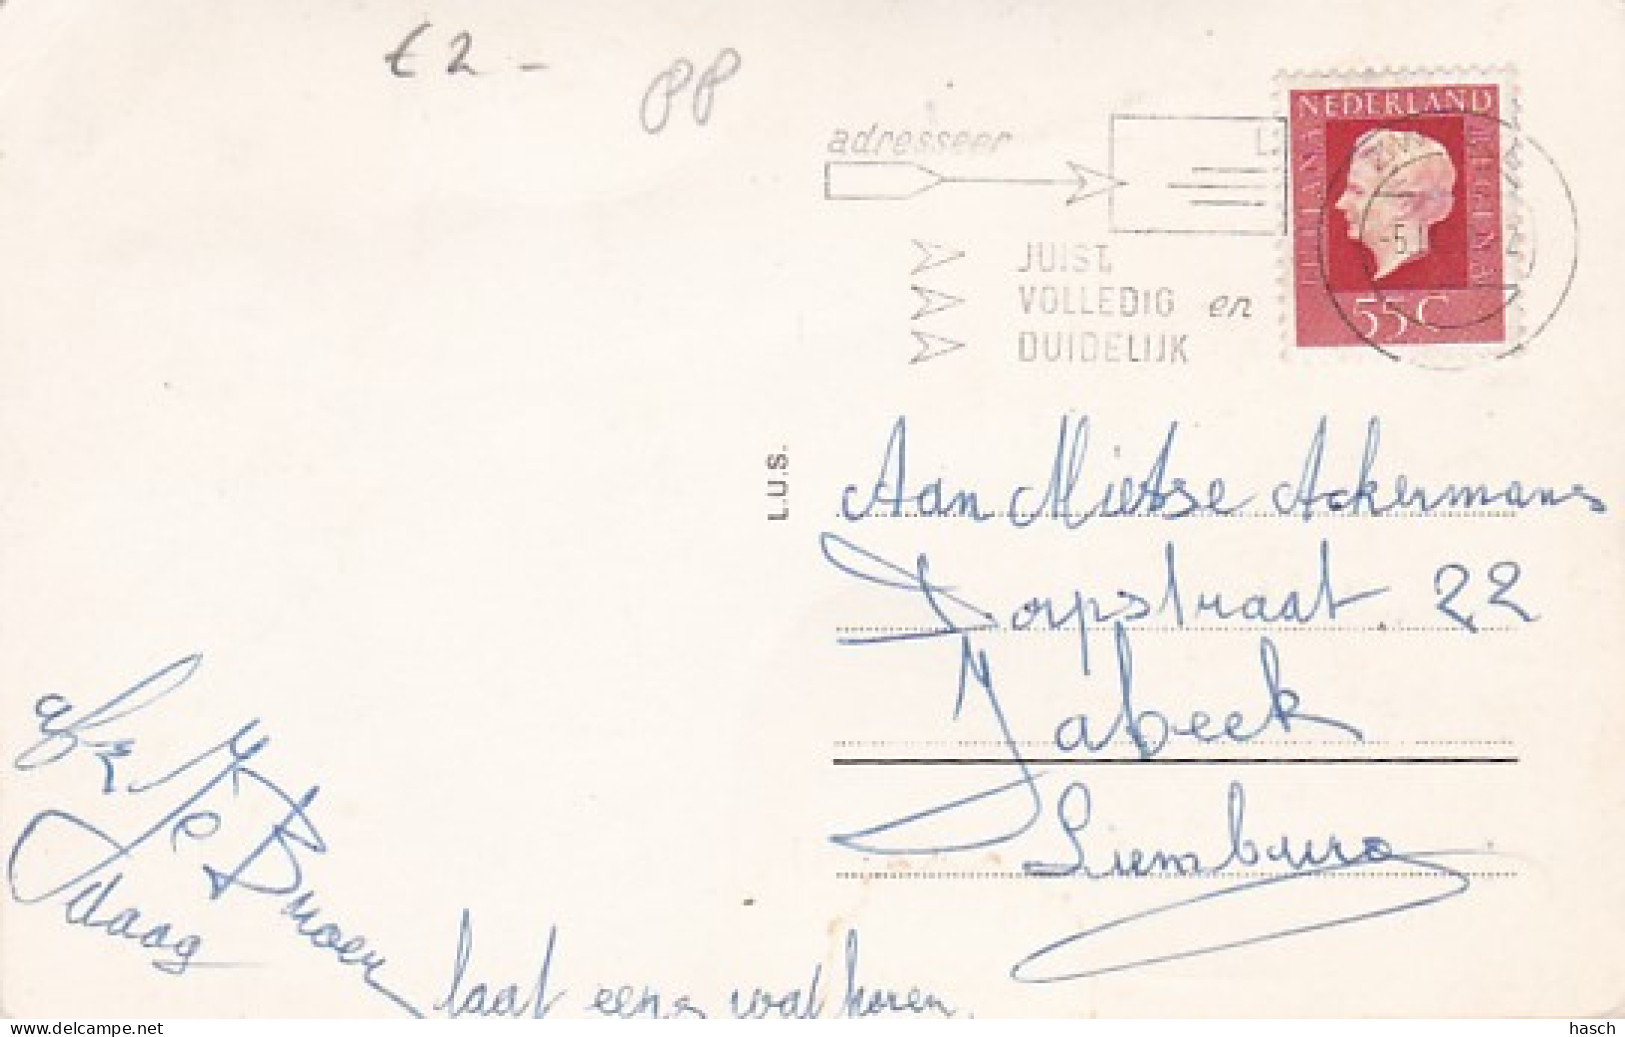 € 2 -
PP
adresseer
JUIST,
VOLLEDIG en
DUIDELIJK
NEDERLAND
JULIANA
REGINA
55 C
-5.
L.U.S.
Aan Mietse Ackermans
Dorpstraat 22
Jabeek
Liemburg
afz
de Bruoer
laat eens wat horen.
hasch